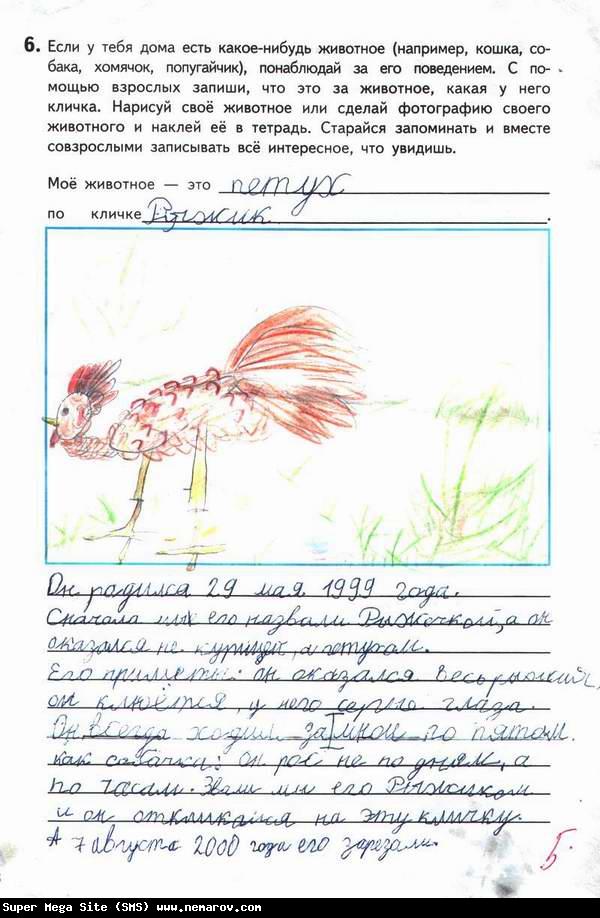 6. Если у тебя дома есть какое-нибудь животное (например, кошка, со-
бака, хомячок, попугайчик), понаблюдай за его поведением. С по-
мощью взрослых запиши, что это за животное, какая у него
кличка. Нарисуй своё животное или сделай фотографию своего
животного и наклей её в тетрадь. Старайся запоминать и вместе
совзрослыми записывать всё интересное, что увидишь.
Моё животное — это петух
по кличке Рыжик.
Он родился 29 мая 1999 года.
Сначала мы его назвали Рыжочкой, а он
оказался не курицей, а петухом.
Его приметы: он оказался весь рыжий,
он клюётся, у него серые глаза.
Он всегда ходил за мной по пятам
как собачка: он рос не по дням, а
по часам. Звали мы его Рыжиком
и он откликался на эту кличку.
А 7 августа 2000 года его зарезали.
5.
Super Mega Site (SMS) www.nemarov.com